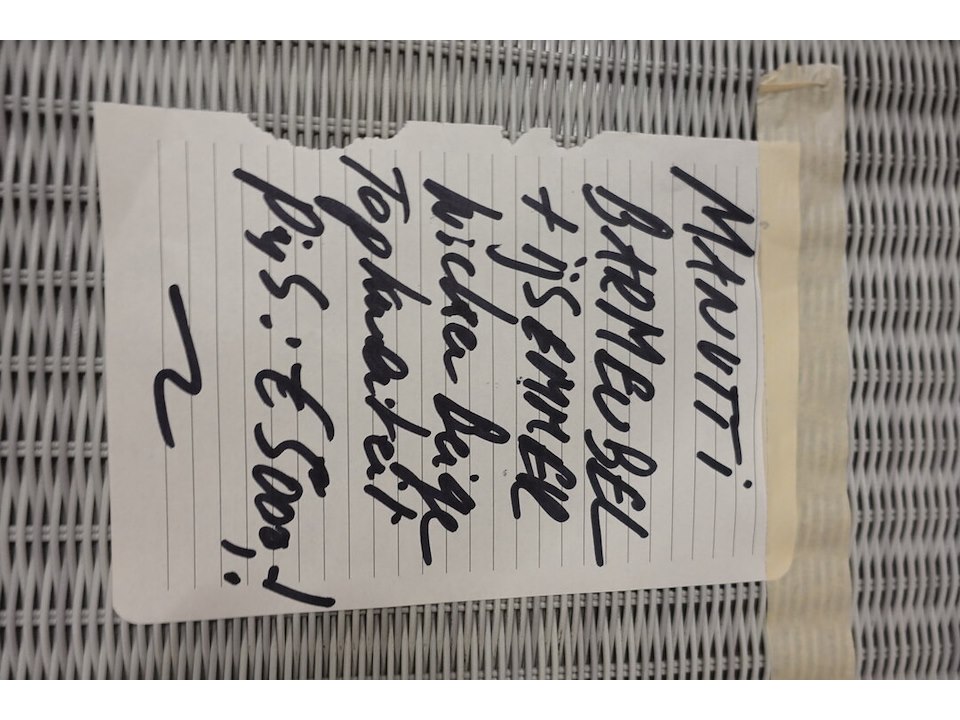 MANUTTI
BARMEUBEL
+ IJSEMMER
wicker beige
Topkwaliteit
Prijs: € 5000,-!